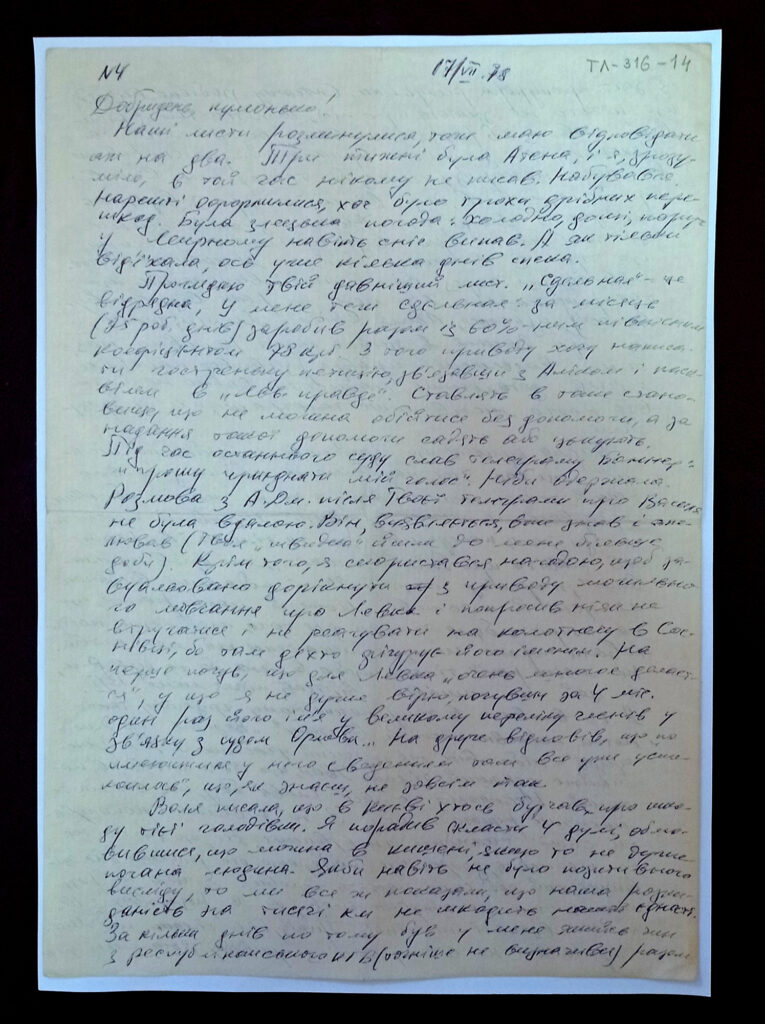 №4 17/VII.78 ТЛ-316-14
Добридень, кумонько!
Наші листи розминулися, тож маю відповідати
аж на два. Три тижні була Атена, і я, зрозу-
міло, в той час нікому не писав. Набувався.
Нарешті одружилися, хоч було трохи дрібних пере-
шкод. Була зледенна погода: холодно, дощі, наруч
у Сеймчані навіть сніг випав. А як тільки
від'їхала, ось уже кілька днів спека.
Проглядаю твій давніший лист. „Сдельная" – це
відрядна. У мене теж сдельная: за місяць
(25 роб. днів) заробив разом із 60%-ним північним
коефіцієнтом 78 крб. З того приводу хочу написа-
ти гостреньку петицію, зв'язавши з Аліком і паск-
вілем в „Льв. правде". Ставлять в таке стано-
вище, що не можна обійтися без допомоги, а за
надання такої допомоги садять або цькують.
Під час останнього суду слав телеграму
и прошу приєднати мій голос". Ніби одержала.
Розмова з А.Дм. після Твоєї телеграми про Василя
не була вдалою. Він, виявляється, вже знав і
(Твоя „швидка" йшла до мене більше
доби). Крім того, я скористався нагодою, щоб за-
вуальовано дорікнути з приводу
го мовчання про Левка і попросив ніза не
втручатися і не реагувати на колотнечу в Сос-
нівці, бо там дехто фігурує його іменем. На
перше почув, що для Левка „очень многое делает-
ся", у що я не дуже вірю, почувши за 4 міс.
один раз його ім'я у великому переліку членів у
зв'язку з судом Орлова... На друге відповів, що „по
имеющимся у него сведениям там все уже успо-
коилось", що, як знаєш, не зовсім так.
Воля писала, що в Києві хтось бурчав про шко-
ду тієї голодівки. Я порадив скласти 4 дулі, обмо-
вившись, що можна в кишені, якщо то не дуже
погана людина. Якби навіть не було позитивного
висліду, то ми все ж показали, що наша розки-
даність на тисячі км не шкодить нашій єдності.
За кілька днів по тому був у мене
з республіканського КГБ (точніше не визначився) разом